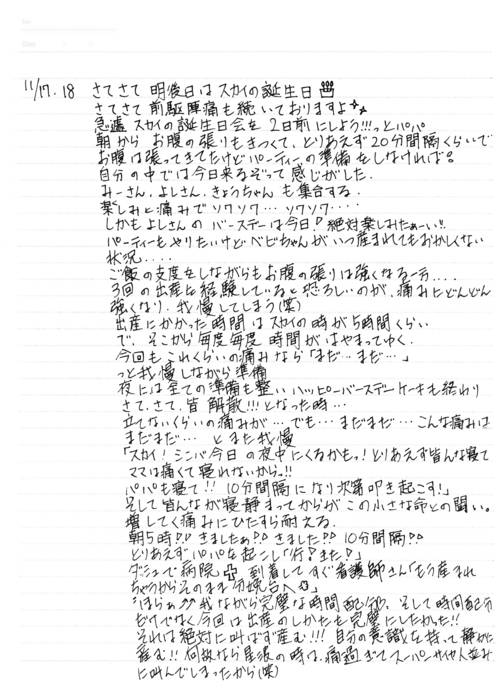 11/17.18 さてさて 明後日は スカイの誕生日
さてさて 前駆陣痛も続いておりますよ
急遽 スカイの誕生日会を 2日前にしよう!!!っとパパ
朝から お腹の張りもきつくて、とりあえず20分間隔くらいで
お腹は張ってきてたけど パーティーの準備をしなければ。
自分の中では今日来るぞって感じがした.
みーさん、よしさん、きょうちゃんも集合する.
楽しみと痛みで ソワソワ… ソワソワ‥‥
しかもよしさんの バースデーは今日! 絶対楽しみたぁーい!!
パーティーもやりたいけど ベビちゃんが いつ産まれてもおかしくない
状況‥‥
ご飯の支度をしながらもお腹の張りは強くなる一方‥‥
3回の出産を経験していると恐ろしいのが、痛みにどんどん
強くなり、我慢してしまう(笑)
出産にかかった時間はスカイの時が5時間くらい
で、そこから毎度毎度 時間がはやまってゆく.
今回も これくらいの痛みなら「まだ…まだ…」
っと我慢しながら準備
夜には全ての準備も整い ハッピーバースデーケーキも終わり
さて、さて、皆 解散!!! となった時…
立てないくらいの痛みが… でも… まだまだ… こんな痛みは
まだまだ… とまた我慢
「スカイ! シンバ 今日の夜中にくるかもっ! とりあえず皆んな寝て
ママは痛くて寝れないからっ!!
パパも寝て!! 10分間隔になり次第 叩き起こす!」
そして皆んなが寝静まってからが この小さな命との闘い。
増してく痛みにひたすら耐える.
朝5時!! きましたぁ!! きました!! 10分間隔!!
とりあえず パパを起こし「行!きた!」
ダッシュで病院 到着して すぐ看護師さん「もう産まれ
ちゃうからそのまま分娩台へ」
ほらぁ 我ながら完璧な時間配分、そして時間配分
だけでなく今回は出産のしかたも完璧にしたかった!!
それは絶対に叫ばず産む!!! 自分の意識を持って静かに
産む!! 何故なら 星浪の時は、痛過ぎて スーパーサイヤ人並み
に叫んでしまったから(笑)